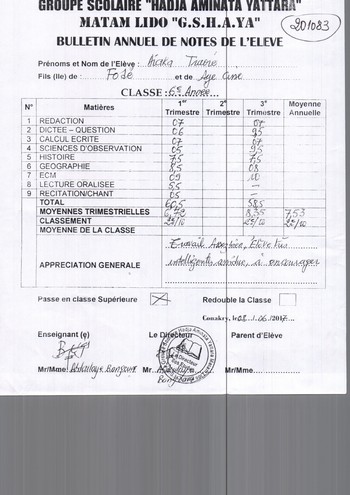 GROUPE SCOLAIRE "HADJA AMINATA YATTARA"
MATAM LIDO "G.S.H.A.YA"
201083
BULLETIN ANNUEL DE NOTES DE L'ELEVE
Prénoms et Nom de l'Elève :
Fils (lle) de : Fodé et de
CLASSE : 6e Année
N° Matières 1er Trimestre 2e Trimestre 3e Trimestre Moyenne Annuelle
1 REDACTION 07 07
2 DICTEE – QUESTION 06
3 CALCUL ECRITE 07 07
4 SCIENCES D'OBSERVATION 05
5 HISTOIRE 7,5 7,5
6 GEOGRAPHIE 8,5 08
7 ECM 09 10
8 LECTURE ORALISEE 5,5 -
9 RECITATION/CHANT 05 -
TOTAL 60,5 58,5
MOYENNES TRIMESTRIELLES 6,72 8,35 7,53
CLASSEMENT
MOYENNE DE LA CLASSE
APPRECIATION GENERALE Travail Elève très
intelligente, à encourager
Passe en classe Supérieure X Redouble la Classe
Conakry, le 02/06/2017
Enseignant (e) Le Directeur Parent d'Elève
Mr/Mme Abdoulaye Bangoura Mr Mr/Mme